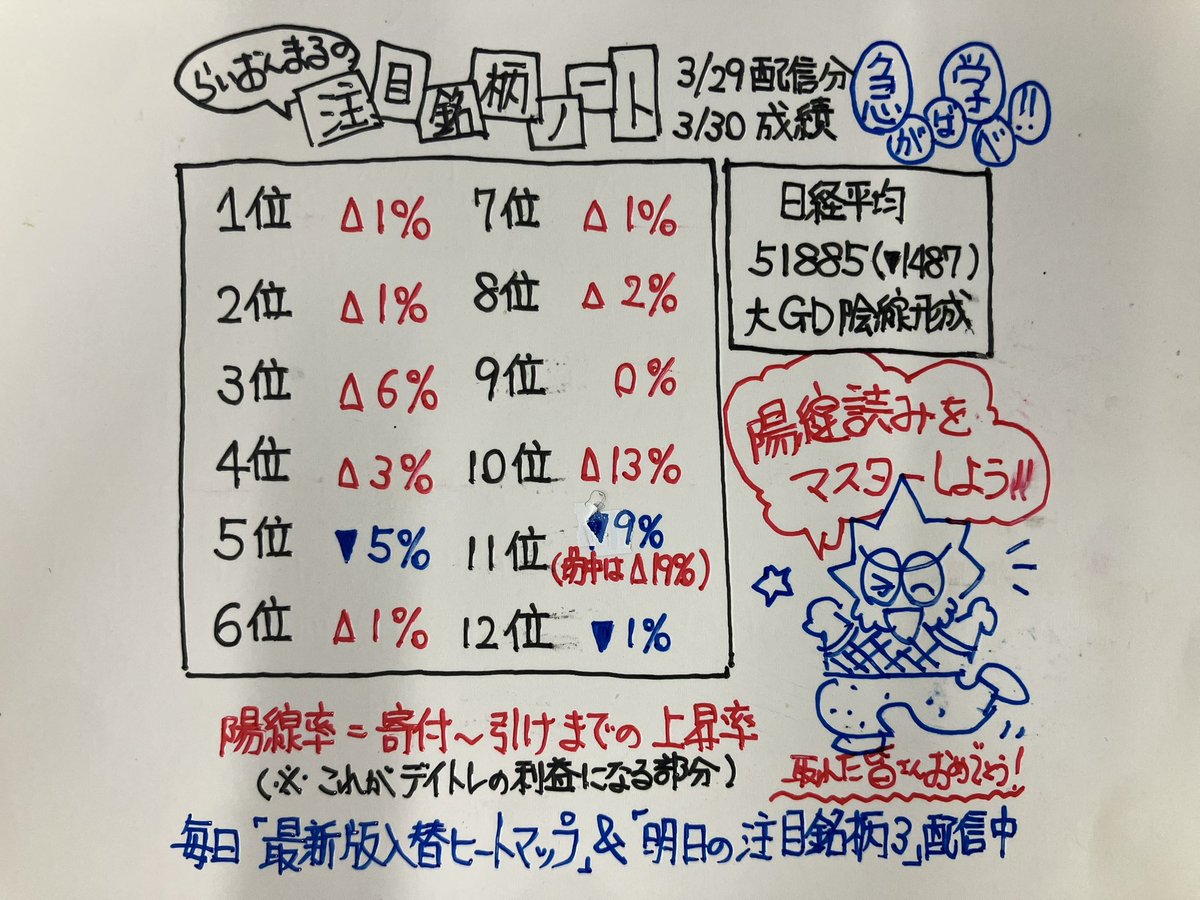 らいおんまるの
注目銘柄ノート
3/29配信分
3/30成績
急がば学べ!!
1位 △1% 7位 △1%
2位 △1% 8位 △2%
3位 △6% 9位 0%
4位 △3% 10位 △13%
5位 ▼5% 11位 ▼9%
(場中は△19%)
6位 △1% 12位 ▼1%
日経平均
51885(▼1487)
大GD陰線形成
陽線読みを
マスターしよう!!
取れた皆さんおめでとう!
陽線率=寄付~引けまでの上昇率
(※これがデイトレの利益になる部分)
毎日「最新版入替ヒートマップ」&「明日の注目銘柄3」配信中